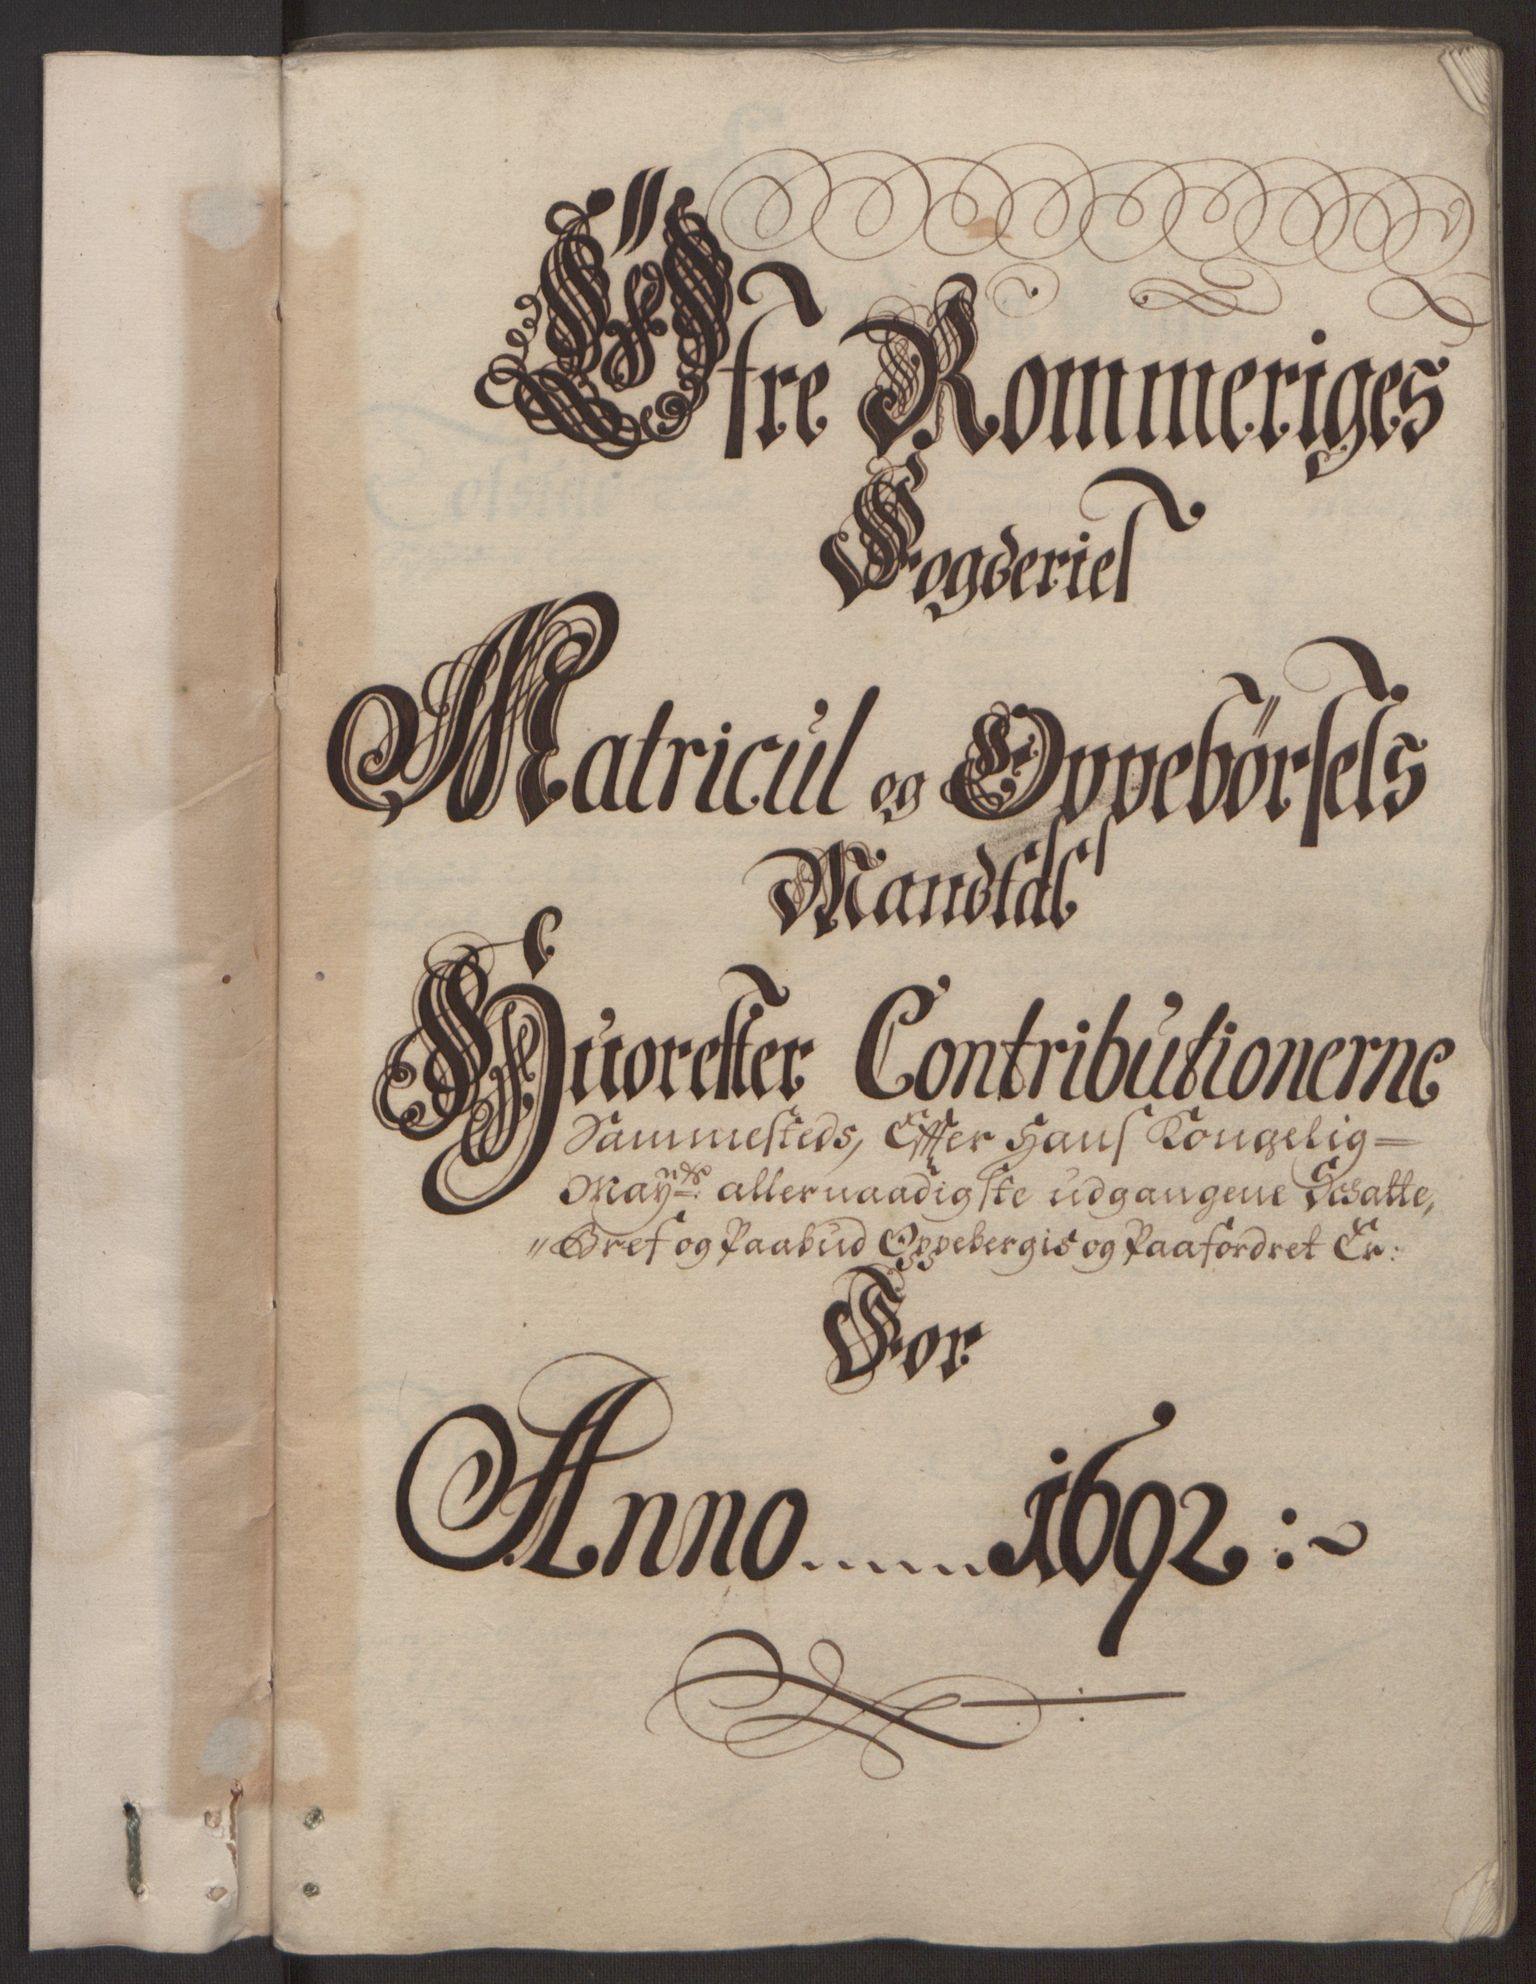 Öfre Rommeriges
Fogderies
Matricul og Oppebörsels
Mandtal
Huorefter Contributionerne
Sammesteds, Effter Hans Kongelig=
May:ts allernaadigste udgangene Schatte,
"Bref og Paabud Oppebergis og Paafordret Er:
For
Anno ..... 1692 :~